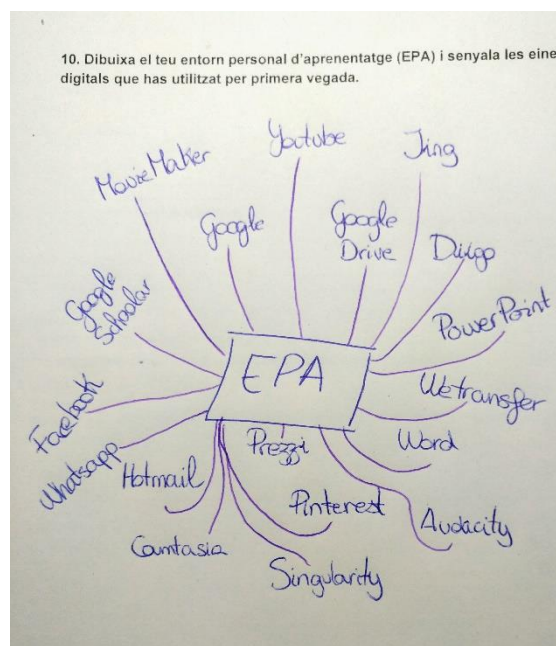 10. Dibuixa el teu entorn personal d'aprenentatge (EPA) i senyala les eine
digitals que has utilitzat per primera vegada.
Youtube
Jing
MovieMaker
Google
Google
Drive
Diigo
Google
Schoolar
PowerPoint
EPA
Wetransfer
Facebook
Word
Prezzi
Whatsapp
Hotmail
Pinterest
Audacity
Camtasia
Singularity